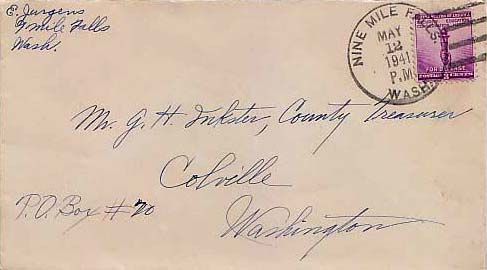 E. Jurgens
9 mile Falls
Wash.
NINE MILE FALLS
MAY
12
1941
P.M.
WASH.
FOR DEFENSE
Mr. G. H. Inkster, County Treasurer
Colville
P.O. Box # 70
Washington